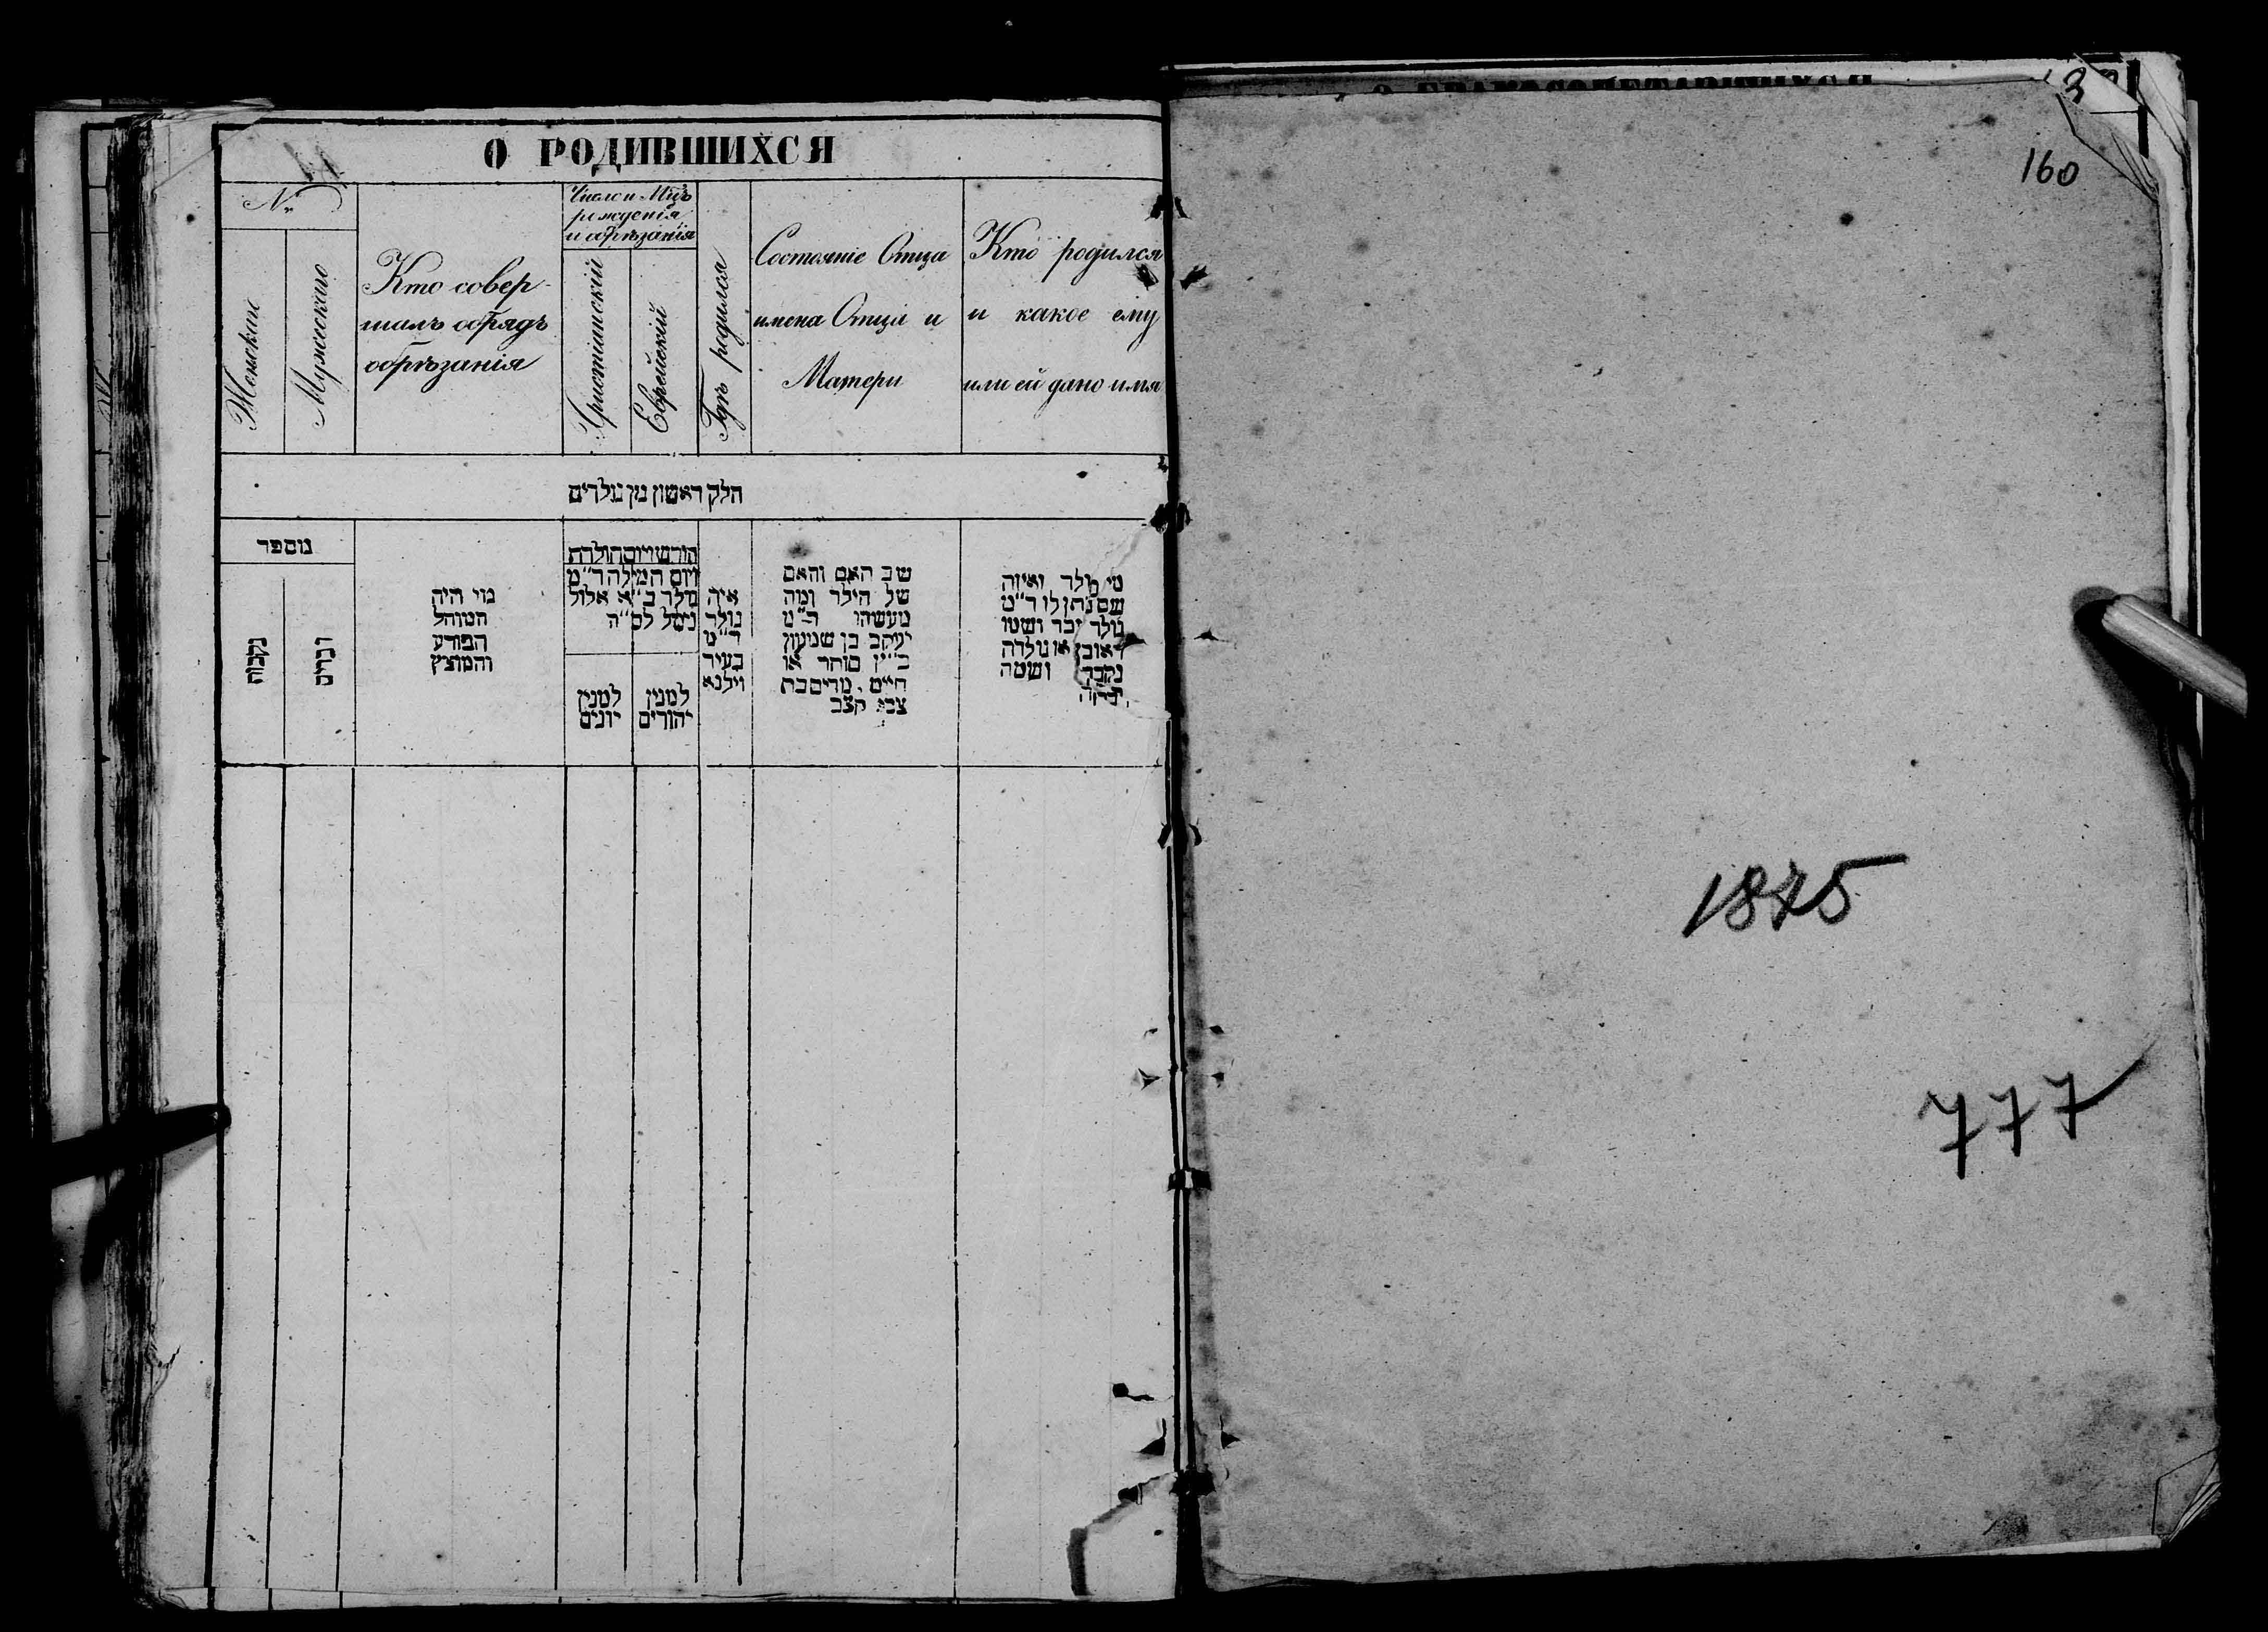 О РОДИВШИХСЯ
№
Женскаго
Мужескаго
Кто совер-
шалъ обрядъ
обрѣзанія
Число и Мцъ
рожденія
и обрѣзанія
Христіанскій
Еврейскій
Гдѣ родился
Состояніе Отца
имена Отца и
Матери
Кто родился
и какое ему
или ей дано имя
חלק ראשון מן נולדים
מספר
נקבות
זכרים
מי היה
המוהל
הפורע
והמוצץ
חודש ויום הולדת
ויום המילה ד"מ
נולד ב"א אלול
נימל לס"ה
למנין
יונים
למנין
יהודים
איה
נולד
ד"מ
בעיר
ווילנא
שב האם והאם
של הילד ומה
מעשהו ד"מ
יעקב בן שמעון
כ"ץ סוחר או
חיים. מרים בת
צבי קצב
מי נולד ואיזה
שם נתן לו ד"מ
נולד זכר ושמו
ראובן או נולדה
נקבה ושמה
О БРАКОСОЧЕТАВШИХСЯ
3
160
1845
777